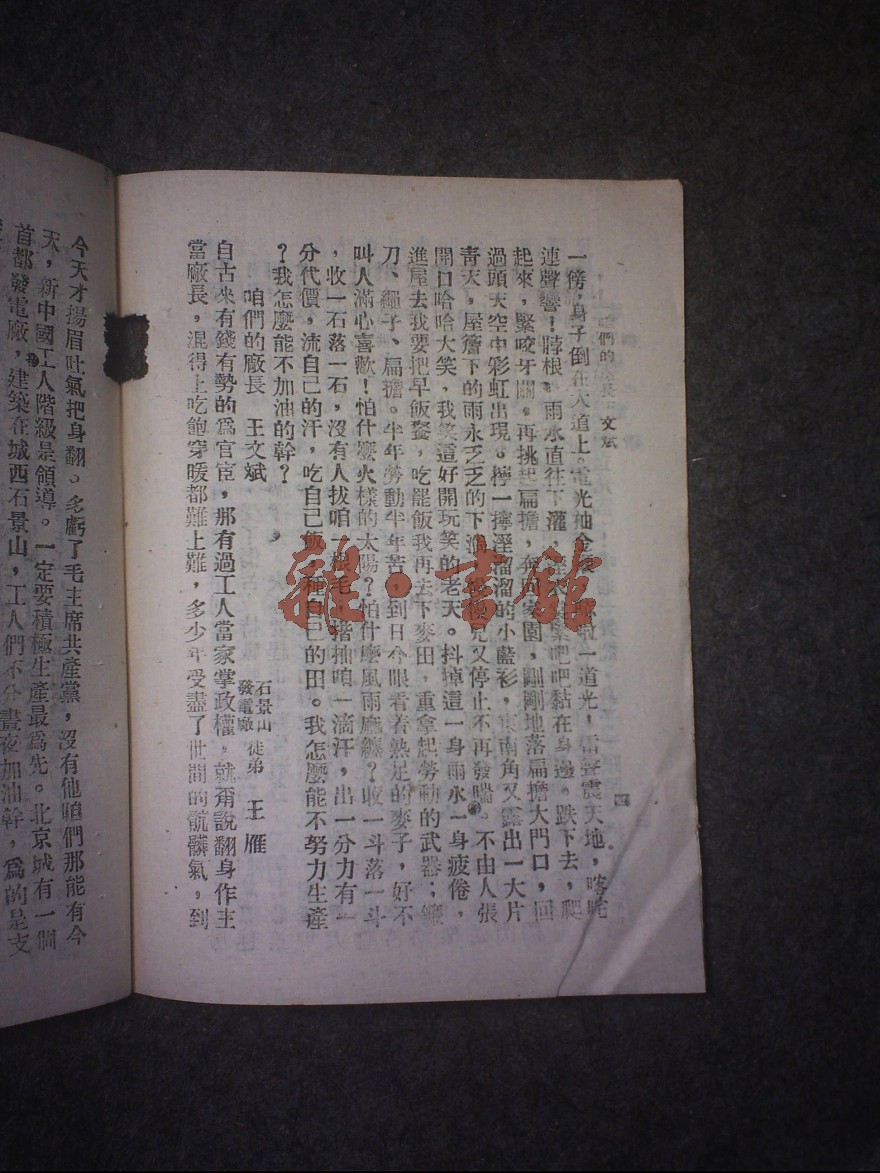 咱們的廠長 文斌
四
一傍，身子倒在大道上。電光抽 一道光，雷聲震天地，喀咤
連聲響！脖根，雨水直往下灌， 緊吧吧黏在身邊。跌下去，爬
起來，緊咬牙關，再挑起扁擔，奔 家園，剛剛地落扁擔大門口，回
過頭天空中彩虹出現。擰一擰溼溜溜的小藍衫，東南角又露出一大片
青天，屋簷下的雨永乏乏的下滴， 又停止不再發喘。不由人張
開口哈哈大笑，我笑這好開玩笑的老天。抖掉這一身雨水一身疲倦，
進屋去我要把早飯餐，吃罷飯我再去下麥田，重拿起勞動的武器；鐮
刀、繩子、扁擔。半年勞動半年苦，到日今眼看着熟足的麥子，好不
叫人滿心喜歡！怕什麼火樣的太陽？怕什麼風雨厮纏？收一斗落一斗
，收一石落一石，沒有人拔咱一根毛，揩抽咱一滴汗，出一分力有一
分代價，流自己的汗，吃自己飯，種自己的田。我怎麼能不努力生產
？我怎麼能不加油的幹？
咱們的廠長 王文斌
石景山
發電廠 徒弟 王雁
自古來有錢有勢的爲官宦，那有過工人當家掌政權，就甭說翻身作主
當廠長，混得上吃飽穿暖都難上難，多少年受盡了世間的骯髒氣，到
今天才揚眉吐氣把身翻。多虧了毛主席共產黨，沒有他咱們那能有今
天，新中國工人階級是領導。一定要積極生產最爲先。北京城有一個
首都發電廠，建築在城西石景山，工人們不分晝夜加油幹，爲的是支
雜·書館